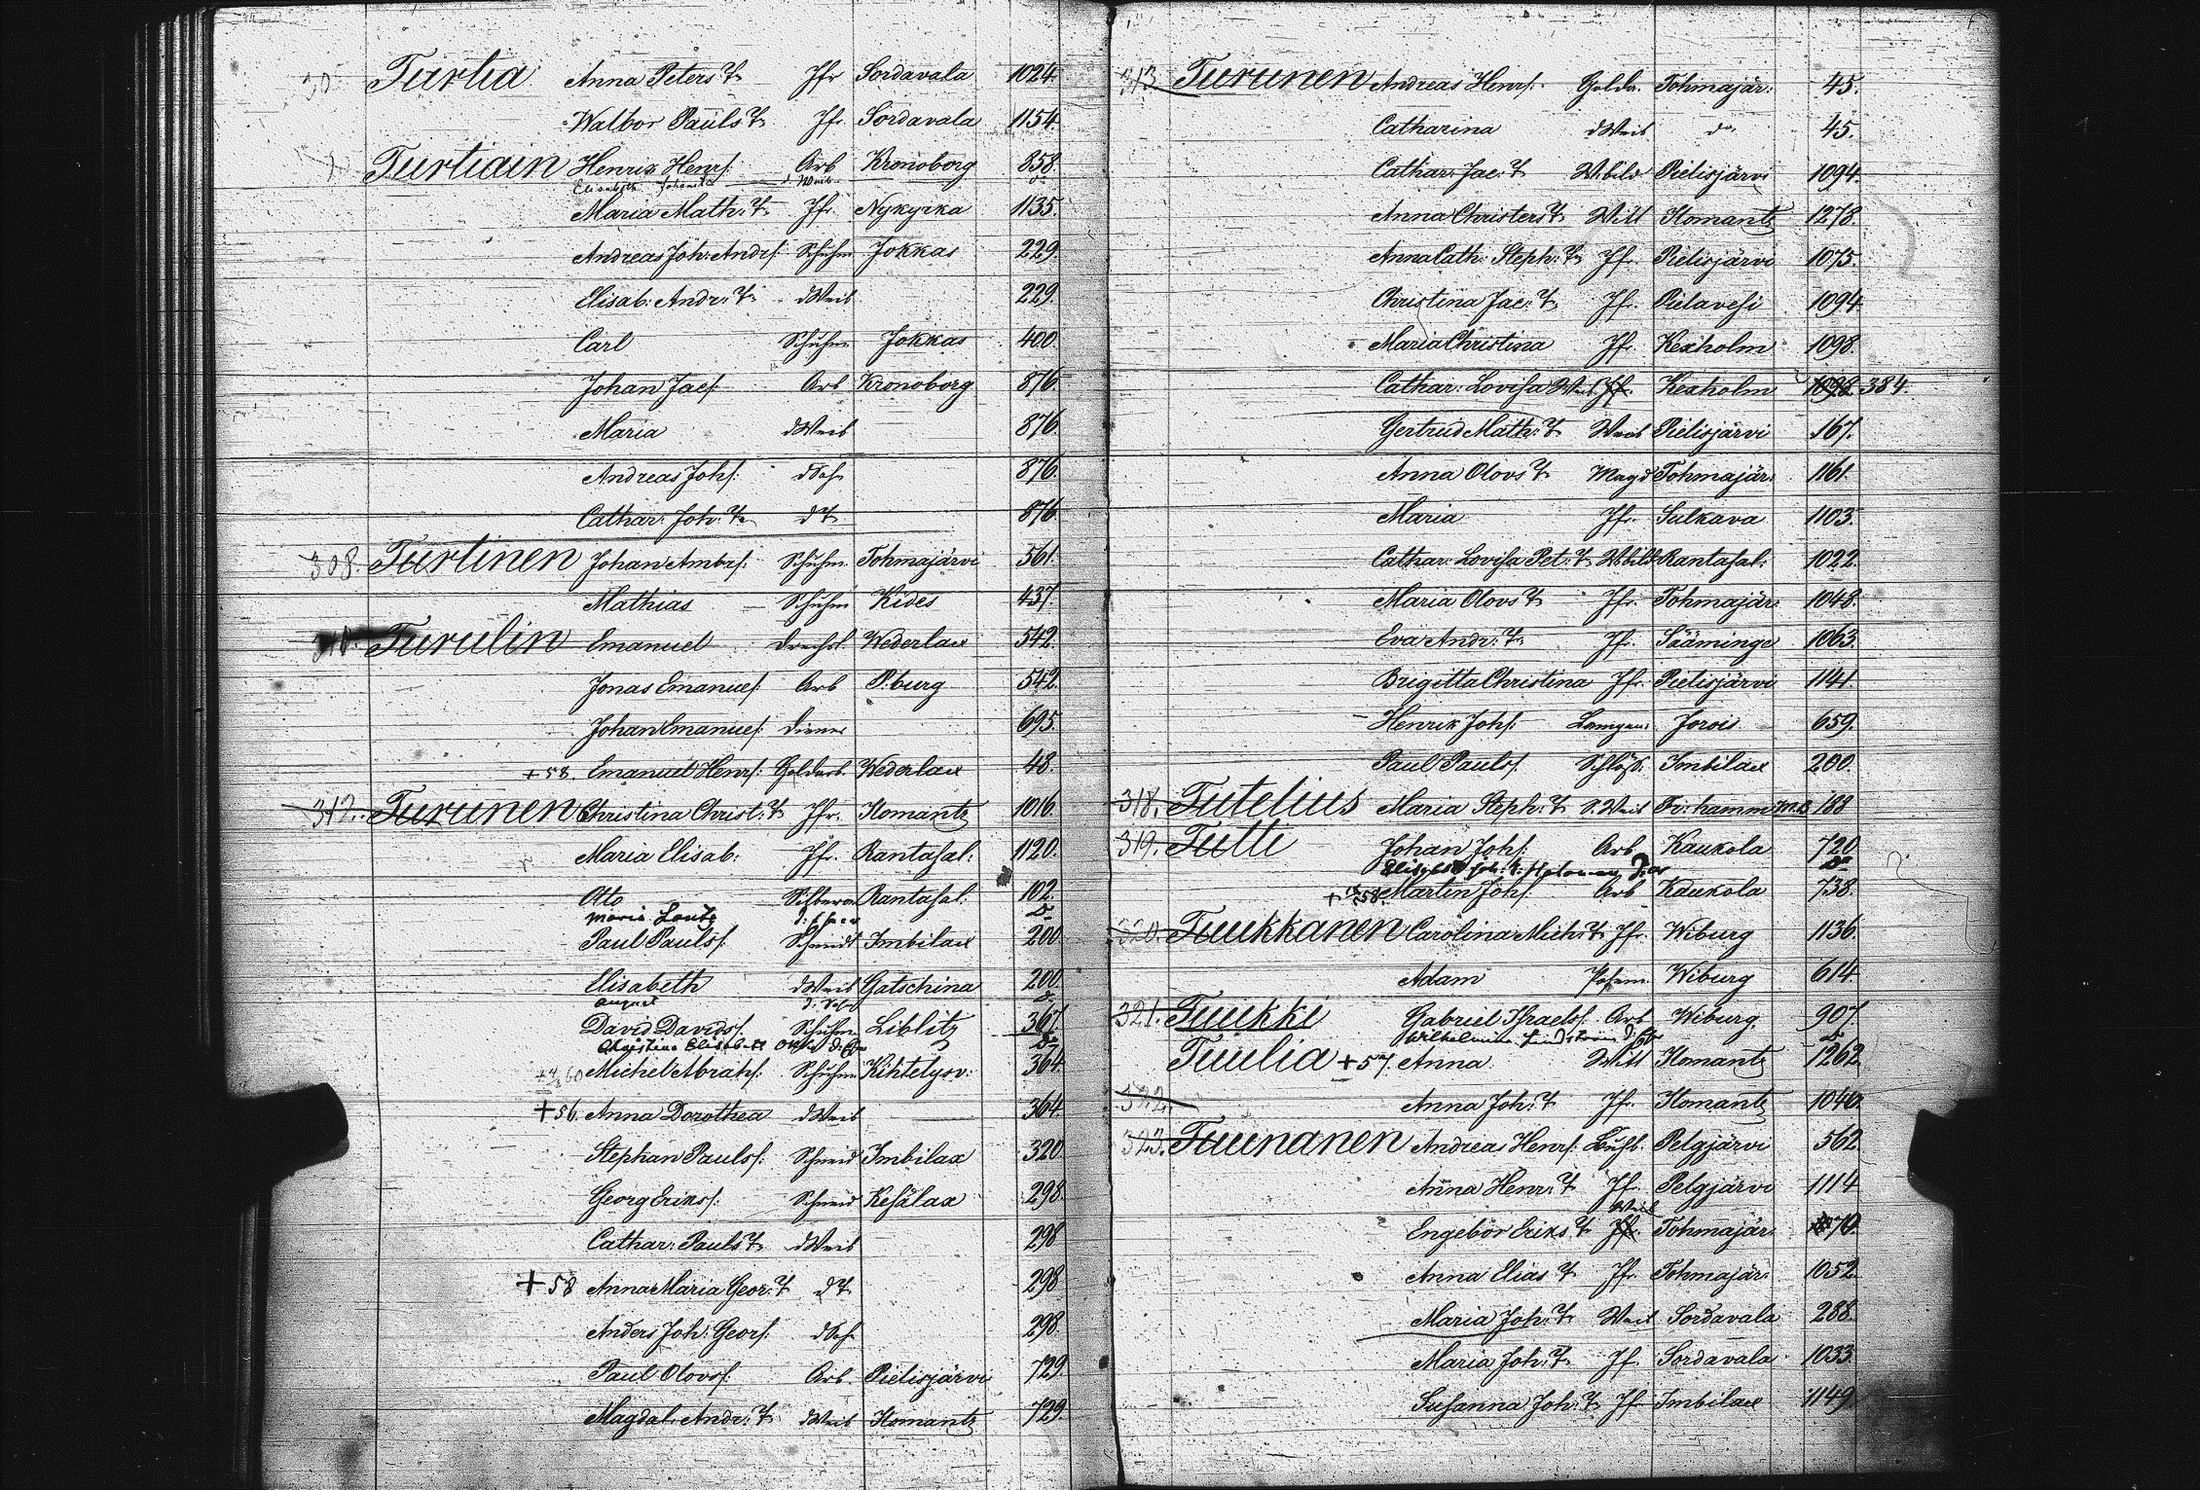 Turtia Anna Peters T. Jfr Sordavala 1024.
Walbor Pauls T. Jfr. Sordavala 1154.
Turtiain Henrik Henrs. Arb Kronoborg 858.
Elisabeth d Weib. do
Maria Math: T. Jfr. Nykyrka 1135.
Andreas Joh: Andrs. Schuhm Jokkas 229.
Elisab: Andr: T. dWeib 229.
Carl Schuhm Jokkas 400.
Johan Jacs. Arb Kronoborg 876.
Maria dWeib 876.
Andreas Johs. dSohn 876.
Cathar: Joh: T. dT. 876.
308. Turtinen Johan Ambrs. Schuhm. Tohmajärvi 561.
Mathias Schuhm Kides 437.
Turulin Emanuel Drechsl. Wederlax 542.
Jonas Emanuels. Arb P.burg 542.
Johan Emanuels. Diener 695.
+58. Emanuel Henrs. Goldarb. Wederlax 48.
312. Turunen Christina Christ: T. Jfr. Ilomantz 1016.
Maria Elisab: Jfr. Rantasal: 1120.
Oto Silberar Rantasal: 102.
Maria do
Paul Pauls. Schmidt Imbilax 200.
Elisabeth dWeib Gatschina 200.
August d. Sohn do
David Davids. Schuhm Liblitz 367.
Christina Elisabeth do
Michel Abrahs. Schuhm Kihtelysv: 364.
+56. Anna Dorothea dWeib 364.
Stephan Pauls. Schneid Imbilax 320.
Georg Eriks. Schneid Kesälax 298.
Cathar: Pauls T. dWeib 298
+58 Anna Maria Geor: T. dT. 298
Anders Joh: Geors. dSohn 298.
Paul Olovs. Arb. Pielisjärvi 729.
Magdal: Andr: T. dWeib Ilomantz 729.
313. Turunen Andreas Henrs. Golda. Tohmajär: 45.
Catharina dWeib do. 45.
Cathar: Jac: T. W.bild Pielisjärvi 1094.
Anna Christers T. Witt Ilomantz 1278.
Anna Cath: Steph: T. Jfr. Pielisjärvi 1075.
Christina Jac: T. Jfr. Pielavesi 1094.
Maria Christina Jfr. Kexholm 1098.
Cathar: Lovisa Weib Jfr. Kexholm 1098. 384.
Gertrud Math: T. Weib Pielisjärvi 167.
Anna Olovs T. Magd Tohmajär: 1161.
Maria Jfr. Sulkava 1103.
Cathar: Lovisa Pet: T. W.bild Rantasal: 1022.
Maria Olovs T. Jfr. Tohmajär: 1048.
Eva Andr: T. Jfr. Sääminge 1063.
Brigitta Christina Jfr. Pielisjärvi 1141.
Henrik Johs. Jorois 659.
Paul Pauls. Schlöß. Imbilax 200.
318. Tutelius Maria Steph: T. S.Weib Fr: hamm 188
319. Tutti Johan Johs. Arb. Kaukola 720.
do
+58. Martin Johs. Arb Kaukola 738.
320. Tuukkanen Carolina Mich: T. Jfr. Wiburg 1136.
Adam Wiburg 614.
321. Tuukki Gabriel Israels. Arb Wiburg. 907.
Wilhelmina Lindström do
Tuulia +57. Anna Witt Ilomantz 1262.
322. Anna Joh: T. Jfr. Ilomantz 1040.
323. Tuunanen Andrea Henrs. Pelgjärvi 562.
Anna Henr: T. Jfr. Pelgjärvi 1114
Weib
Engebor Eriks T. Jfr. Tohmajär: 70.
Anna Elias T. Jfr. Tohmajär: 1052.
Maria Joh: T. Weib Sordavala 288.
Maria Joh: T. Jf. Sordavala 1033.
Susanna Joh: T. Jf. Imbilax 1149.